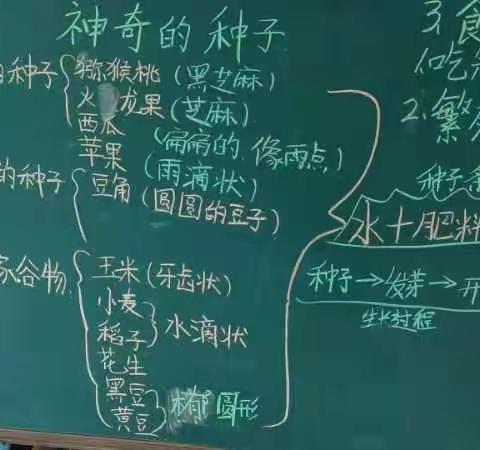 神奇的种子
种子
猕猴桃(黑芝麻)
火龙果(芝麻)
西瓜(扁扁的、像雨点)
苹果(雨滴状)
的种子
豆角(圆圆的豆子)
谷物
玉米(牙齿状)
小麦
稻子
水滴状
花生
黑豆
黄豆
椭圆形
3.
(吃
2.繁
种子
水+肥料
种子→发芽→开
生长过程